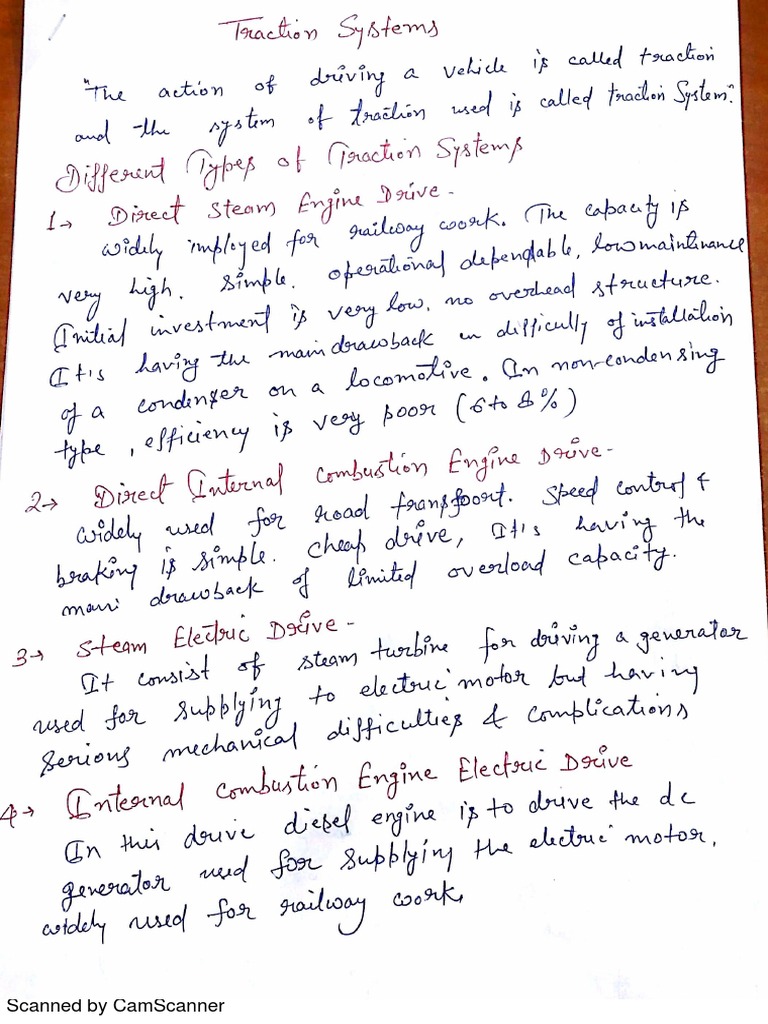 Traction Systems
"The action of driving a vehicle is called traction
and the system of traction used is called traction System".
Different Types of Traction Systems
1→ Direct Steam Engine Drive -
widely imployed for railway work. The capacity is
very high. Simple. operational dependable, low maintinance
Initial investment is very low. no overhead structure.
It is having the main drawback in difficulty of installation
of a condenser on a locomotive. In non-condensing
type, efficiency is very poor (6 to 8%)
2→ Direct Internal Combustion Engine Drive -
widely used for road transport. Speed control &
braking is simple. cheap drive, It is having the
main drawback of limited overload capacity.
3→ Steam Electric Drive -
It consist of steam turbine for driving a generator
used for supplying to electric motor but having
serious mechanical difficulties & complications
4→ Internal Combustion Engine Electric Drive
In this drive diesel engine is to drive the dc
generator used for supplying the electric motor.
widely used for railway work.
Scanned by CamScanner